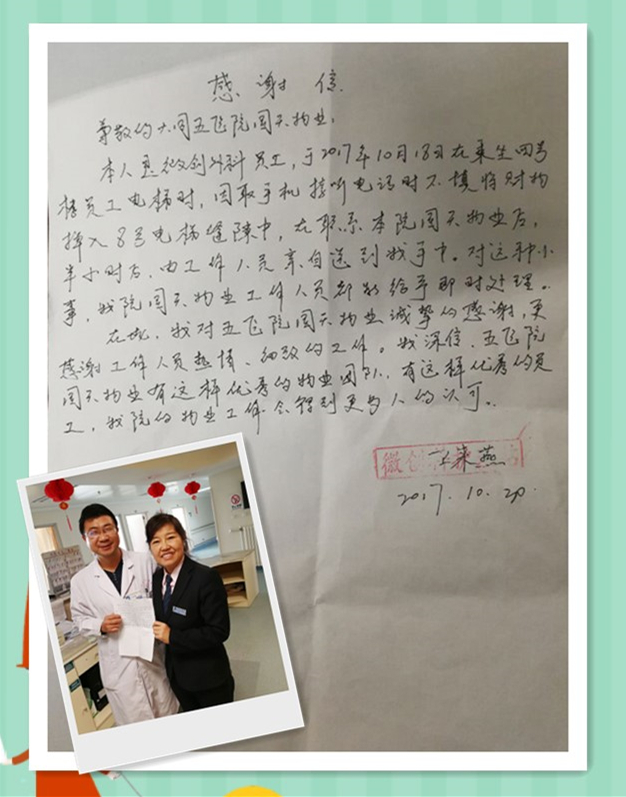 感谢信
尊敬的大同五医院阖天物业:
本人系微创外科员工,于2017年10月18日在乘坐四号
楼员工电梯时,因取手机接听电话时不慎将财物
掉入8号电梯缝隙中,在联系本院阖天物业后,
半小时后,由工作人员亲自送到我手中。对这种小
事,我院阖天物业工作人员都能给予即时处理。
在此,我对五医院阖天物业诚挚的感谢,更
感谢工作人员热情、细致的工作。我深信,五医院
阖天物业有这样优秀的物业团队,有这样优秀的员
工,我院的物业工作会得到更多人的认可。
微创
燕
2017.10.20.